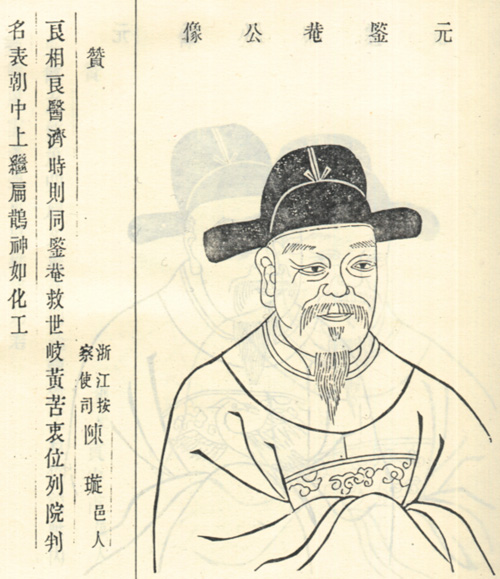 元鋻菴公像
贊
浙江按
察使司
陳璇邑人
良相良醫濟時則同鋻菴救世岐黃苦衷位列院判
名表朝中上繼扁鵲神如化工